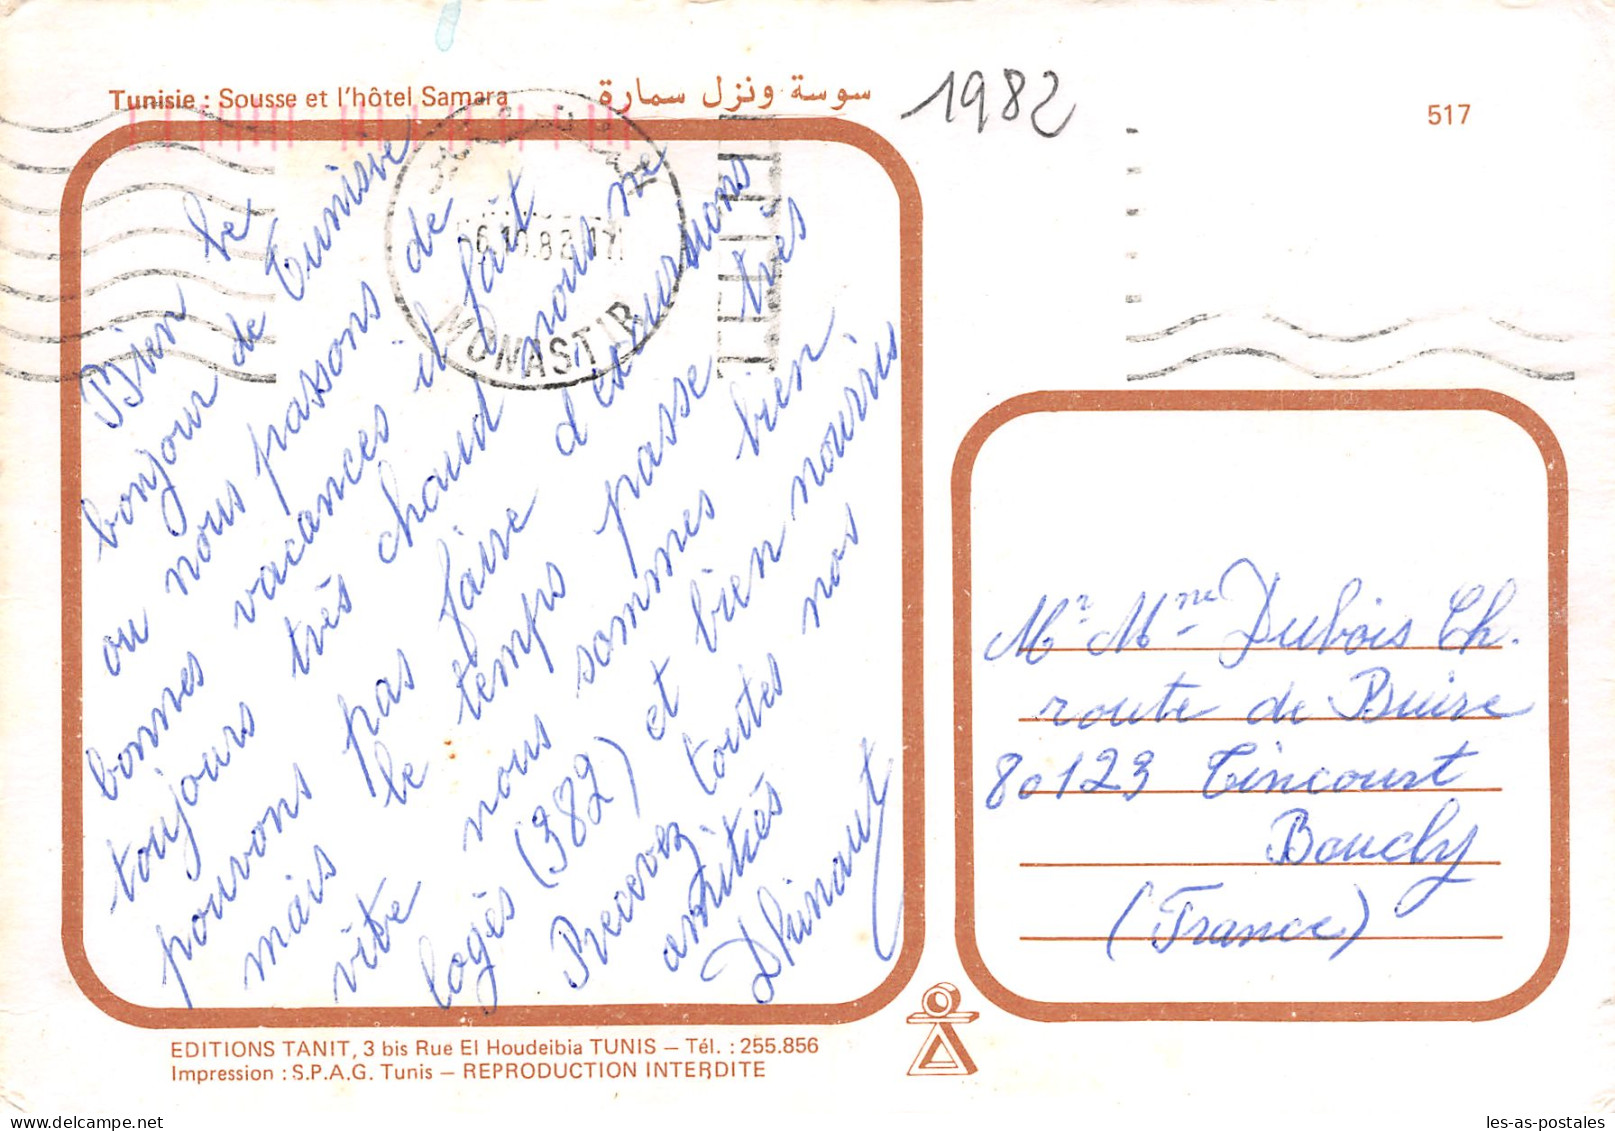 Tunisie : Sousse et l'hôtel Samara
سوسة ونزل سمارة
1982
517
6.10.82
MONASTIR
Bien le
bonjour de Tunisie
ou nous passons de
bonnes vacances il fait
toujours très chaud nous ne
pouvons pas faire d'excursions
mais le temps passe très
vite nous sommes bien
logés (382) et bien nourris
Recevez toutes nos
amitiés
Mr Mme Dubois Ch.
route de Buire
80123 Tincourt
Boucly
(France)
EDITIONS TANIT, 3 bis Rue El Houdeibia TUNIS – Tél. : 255.856
Impression : S.P.A.G. Tunis – REPRODUCTION INTERDITE
les-as-postales
delcampe.net